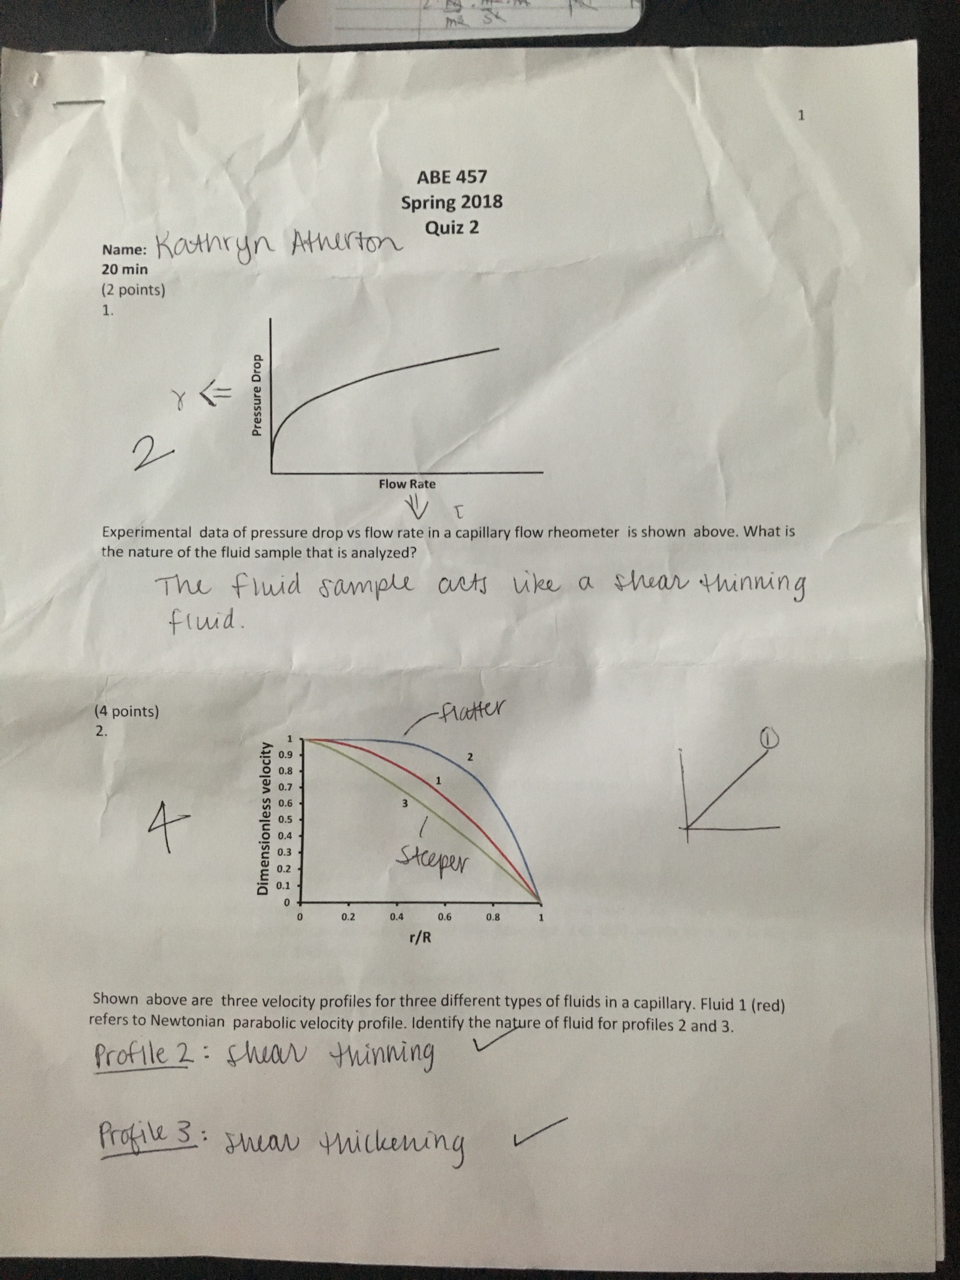 1
ABE 457
Spring 2018
Quiz 2
Name: Kathryn Atherton
20 min
(2 points)
1.
Pressure Drop
γ <=
2
Flow Rate
Experimental data of pressure drop vs flow rate in a capillary flow rheometer is shown above. What is
the nature of the fluid sample that is analyzed?
The fluid sample acts like a shear thinning
fluid.
(4 points)
2.
flatter
1
4
Dimensionless velocity
1
0.9
0.8
0.7
0.6
0.5
0.4
0.3
0.2
0.1
0
2
1
3
steeper
0 0.2 0.4 0.6 0.8 1
r/R
Shown above are three velocity profiles for three different types of fluids in a capillary. Fluid 1 (red)
refers to Newtonian parabolic velocity profile. Identify the nature of fluid for profiles 2 and 3.
Profile 2: shear thinning
Profile 3: shear thickening